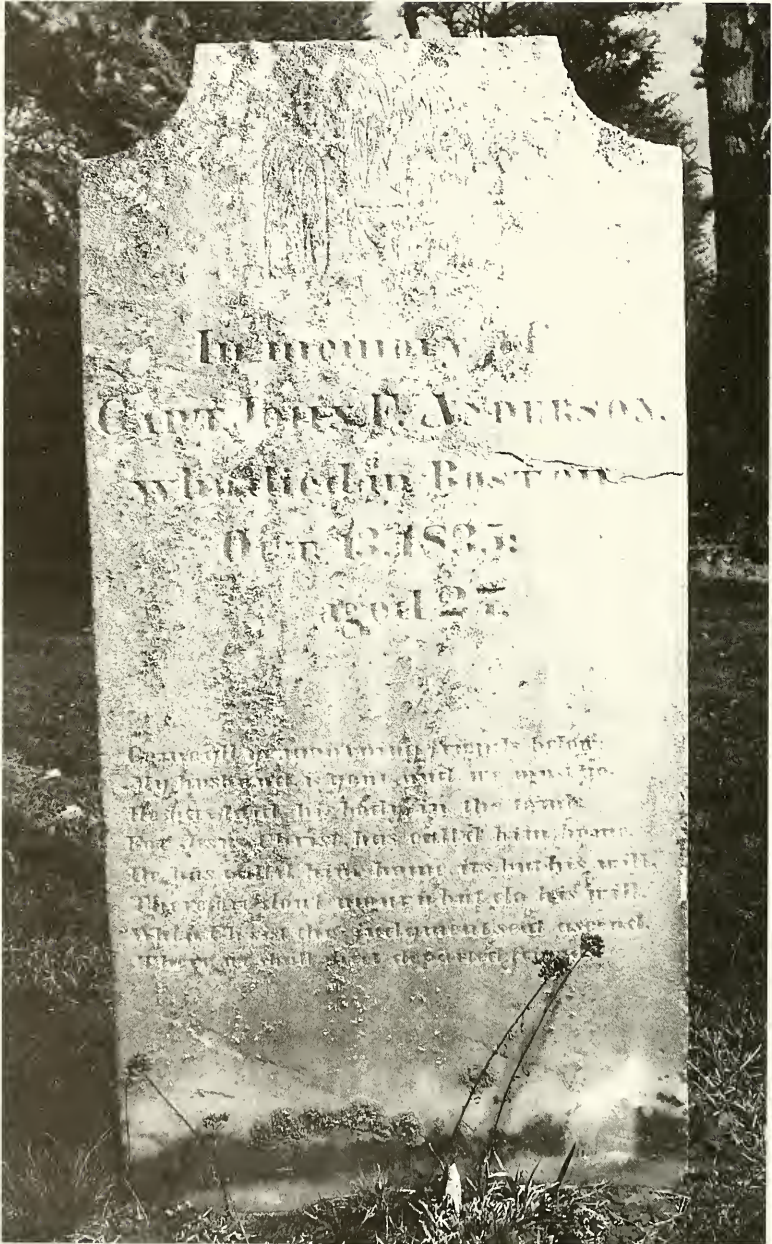 In memory of
CAPT. JOHN F. ANDERSON,
who died in BOSTON
OCT. 13, 1835:
aged 27.
Come all my mourning friends
My husband is gone and we must go.
his body in the tomb
For Jesus Christ has call'd him home.
He has call'd him home its but his will,
Therefore don't mourn but do his will
While Christ the judgment seat ascend.
Where we shall meet departed